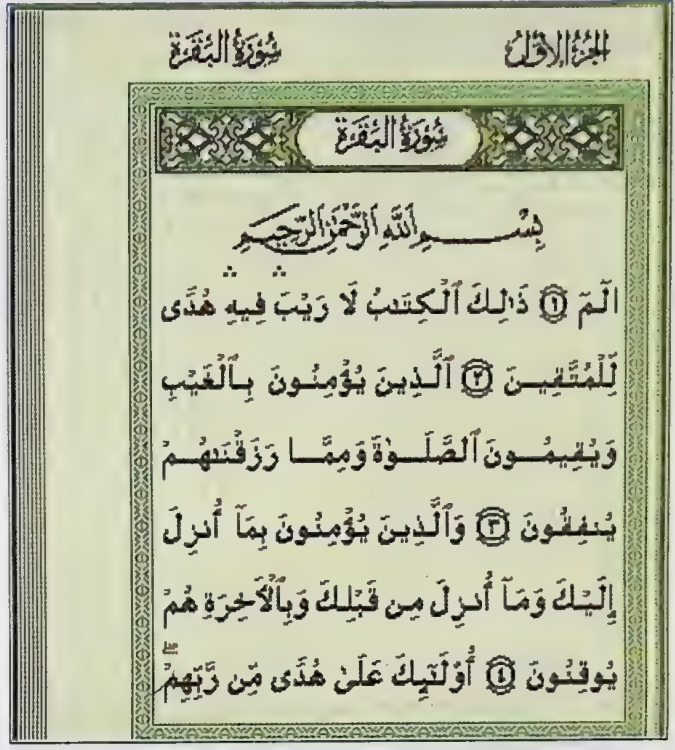 الجزء الأول
سُورَةُ البَقَرَةِ
سُورَةُ البَقَرَةِ
بِسْمِ اللَّهِ الرَّحْمَٰنِ الرَّحِيمِ
الٓمٓ ١ ذَٰلِكَ ٱلْكِتَٰبُ لَا رَيْبَ ۛ فِيهِ ۛ هُدًى
لِّلْمُتَّقِينَ ٢ ٱلَّذِينَ يُؤْمِنُونَ بِٱلْغَيْبِ
وَيُقِيمُونَ ٱلصَّلَوٰةَ وَمِمَّا رَزَقْنَٰهُمْ
يُنفِقُونَ ٣ وَٱلَّذِينَ يُؤْمِنُونَ بِمَآ أُنزِلَ
إِلَيْكَ وَمَآ أُنزِلَ مِن قَبْلِكَ وَبِٱلْأَخِرَةِ هُمْ
يُوقِنُونَ ٤ أُوْلَٰٓئِكَ عَلَىٰ هُدًى مِّن رَّبِّهِمْ ۖ